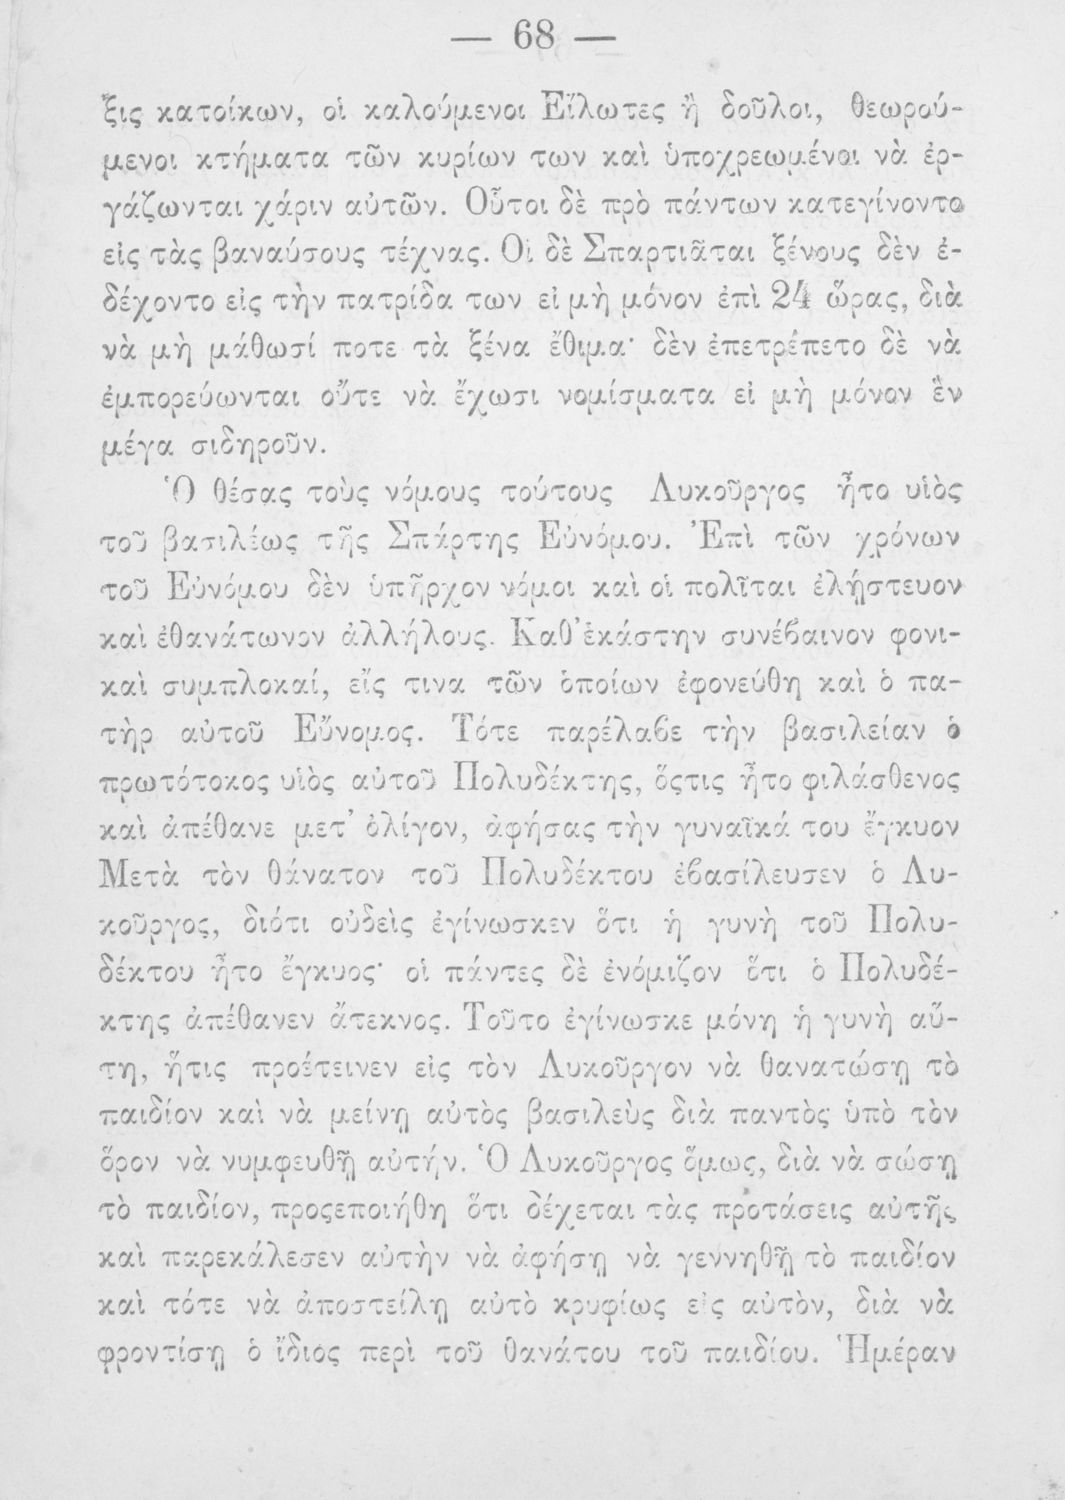 — 68 —
ξις κατοίκων, οἱ καλούμενοι Εἵλωτες ἢ δοῦλοι, θεωρού-
μενοι κτήματα τῶν κυρίων των καὶ ὑποχρεωμένοι νὰ ἐρ-
γάζωνται χάριν αὐτῶν. Οὗτοι δὲ πρὸ πάντων κατεγίνοντο
εἰς τὰς βαναύσους τέχνας. Οἱ δὲ Σπαρτιᾶται ξένους δὲν ἐ-
δέχοντο εἰς τὴν πατρίδα των εἰ μὴ μόνον ἐπὶ 24 ὥρας, διὰ
νὰ μὴ μάθωσί ποτε τὰ ξένα ἔθιμα· δὲν ἐπετρέπετο δὲ νὰ
ἐμπορεύωνται οὔτε νὰ ἔχωσι νομίσματα εἰ μὴ μόνον ἓν
μέγα σιδηροῦν.
Ὁ θέσας τοὺς νόμους τούτους Λυκοῦργος ἦτο υἱὸς
τοῦ βασιλέως τῆς Σπάρτης Εὐνόμου. Ἐπὶ τῶν χρόνων
τοῦ Εὐνόμου δὲν ὑπῆρχον νόμοι καὶ οἱ πολῖται ἐλῄστευον
καὶ ἐθανάτωνον ἀλλήλους. Καθ' ἑκάστην συνέβαινον φονι-
καὶ συμπλοκαί, εἴς τινα τῶν ὁποίων ἐφονεύθη καὶ ὁ πα-
τὴρ αὐτοῦ Εὔνομος. Τότε παρέλαβε τὴν βασιλείαν ὁ
πρωτότοκος υἱὸς αὐτοῦ Πολυδέκτης, ὅςτις ἦτο φιλάσθενος
καὶ ἀπέθανε μετ' ὀλίγον, ἀφήσας τὴν γυναῖκά του ἔγκυον
Μετὰ τὸν θάνατον τοῦ Πολυδέκτου ἐβασίλευσεν ὁ Λυ-
κοῦργος, διότι οὐδεὶς ἐγίνωσκεν ὅτι ἡ γυνὴ τοῦ Πολυ-
δέκτου ἦτο ἔγκυος· οἱ πάντες δὲ ἐνόμιζον ὅτι ὁ Πολυδέ-
κτης ἀπέθανεν ἄτεκνος. Τοῦτο ἐγίνωσκε μόνη ἡ γυνὴ αὕ-
τη, ἥτις προέτεινεν εἰς τὸν Λυκοῦργον νὰ θανατώσῃ τὸ
παιδίον καὶ νὰ μείνῃ αὐτὸς βασιλεὺς διὰ παντὸς ὑπὸ τὸν
ὅρον νὰ νυμφευθῇ αὐτήν. Ὁ Λυκοῦργος ὅμως, διὰ νὰ σώσῃ
τὸ παιδίον, προςεποιήθη ὅτι δέχεται τὰς προτάσεις αὐτῆς
καὶ παρεκάλεσεν αὐτὴν νὰ ἀφήσῃ νὰ γεννηθῇ τὸ παιδίον
καὶ τότε νὰ ἀποστείλῃ αὐτὸ κρυφίως εἰς αὐτὸν, διὰ νὰ
φροντίσῃ ὁ ἴδιος περὶ τοῦ θανάτου τοῦ παιδίου. Ἡμέραν